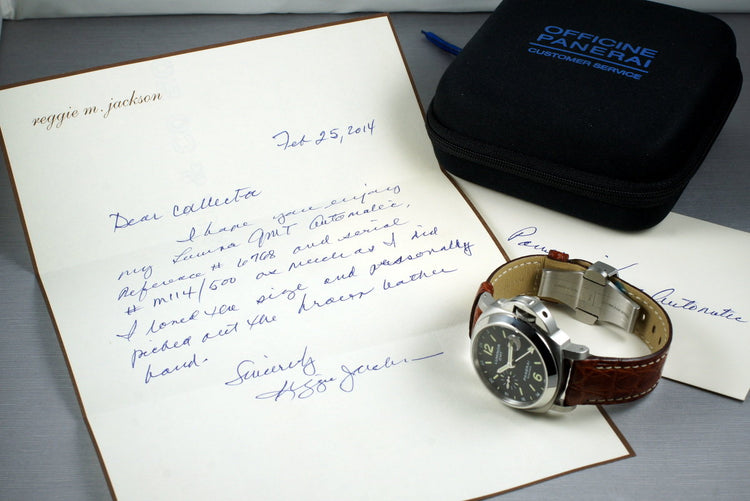 reggie m. jackson
Feb 25, 2014
Dear Collector
I hope you enjoy
my Lumina GMT Automatic,
Reference # 6768 and serial
# M114/500 as much as I did
I loved the size and personally
picked out the brown leather
band.
Sincerely
Reggie Jackson
OFFICINE
PANERAI
CUSTOMER SERVICE
Automatic